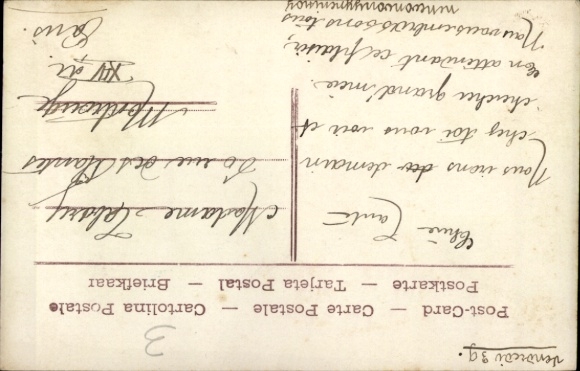 vendredi 39.
3
Post-Card — Carte Postale — Cartolina Postale
Postkarte — Tarjeta Postal — Briefkaar
Chère Tante
Nous irons demain
chez toi vous voir et
chercher grand'mère.
En attendant ce plaisir,
Nous vous embrassons tous
Madame
rue des Plantes
Montrouge
XIV arr.
Paris.